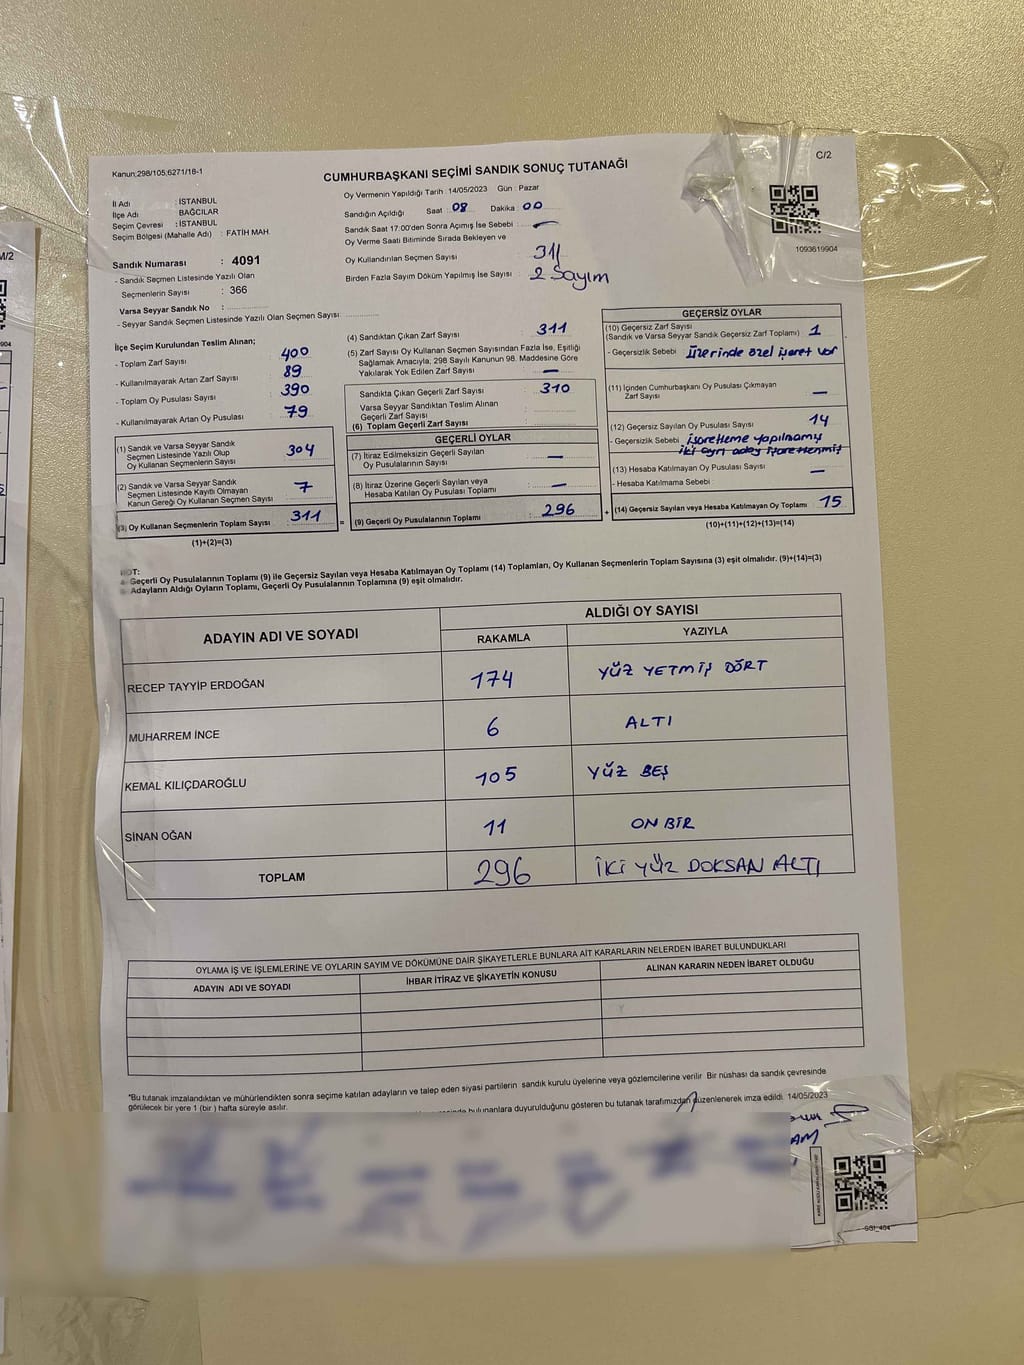 Kanun;298/105;6271/16-1
CUMHURBAŞKANI SEÇİMİ SANDIK SONUÇ TUTANAĞI
C/2
İl Adı : İSTANBUL
İlçe Adı : BAĞCILAR
Seçim Çevresi : İSTANBUL
Seçim Bölgesi (Mahalle Adı) : FATİH MAH.
Oy Vermenin Yapıldığı Tarih : 14/05/2023 Gün : Pazar
Sandığın Açıldığı Saat 08 Dakika 00
Sandık Saat 17:00'den Sonra Açımış İse Sebebi : —
Oy Verme Saati Bitiminde Sırada Bekleyen ve
Oy Kullandırılan Seçmen Sayısı 311
Birden Fazla Sayım Döküm Yapılmış İse Sayısı : 2 Sayım
1093619904
Sandık Numarası : 4091
- Sandık Seçmen Listesinde Yazılı Olan
Seçmenlerin Sayısı : 366
Varsa Seyyar Sandık No :
- Seyyar Sandık Seçmen Listesinde Yazılı Olan Seçmen Sayısı:
İlçe Seçim Kurulundan Teslim Alınan;
- Toplam Zarf Sayısı : 400
- Kullanılmayarak Artan Zarf Sayısı : 89
- Toplam Oy Pusulası Sayısı : 390
- Kullanılmayarak Artan Oy Pusulası : 79
(1) Sandık ve Varsa Seyyar Sandık
Seçmen Listesinde Yazılı Olup
Oy Kullanan Seçmenlerin Sayısı : 304
(2) Sandık ve Varsa Seyyar Sandık
Seçmen Listesinde Kayıtlı Olmayan
Kanun Gereği Oy Kullanan Seçmen Sayısı : 7
(3) Oy Kullanan Seçmenlerin Toplam Sayısı : 311 =
(1)+(2)=(3)
(4) Sandıktan Çıkan Zarf Sayısı : 311
(5) Zarf Sayısı Oy Kullanan Seçmen Sayısından Fazla İse, Eşitliği
Sağlamak Amacıyla; 298 Sayılı Kanunun 98. Maddesine Göre
Yakılarak Yok Edilen Zarf Sayısı : —
Sandıkta Çıkan Geçerli Zarf Sayısı : 310
Varsa Seyyar Sandıktan Teslim Alınan
Geçerli Zarf Sayısı :
(6) Toplam Geçerli Zarf Sayısı :
GEÇERLİ OYLAR
(7) İtiraz Edilmeksizin Geçerli Sayılan
Oy Pusulalarının Sayısı : —
(8) İtiraz Üzerine Geçerli Sayılan veya
Hesaba Katılan Oy Pusulası Toplamı : —
(9) Geçerli Oy Pusulalarının Toplamı : 296 +
GEÇERSİZ OYLAR
(10) Geçersiz Zarf Sayısı
(Sandık ve Varsa Seyyar Sandık Geçersiz Zarf Toplamı) : 1
- Geçersizlik Sebebi : Üzerinde özel işaret var
(11) İçinden Cumhurbaşkanı Oy Pusulası Çıkmayan
Zarf Sayısı : —
(12) Geçersiz Sayılan Oy Pusulası Sayısı : 14
- Geçersizlik Sebebi : işaretleme yapılmamış
iki ayrı aday işaretlenmiş
(13) Hesaba Katılmayan Oy Pusulası Sayısı : —
- Hesaba Katılmama Sebebi :
(14) Geçersiz Sayılan veya Hesaba Katılmayan Oy Toplamı : 15
(10)+(11)+(12)+(13)=(14)
NOT:
Geçerli Oy Pusulalarının Toplamı (9) ile Geçersiz Sayılan veya Hesaba Katılmayan Oy Toplamı (14) Toplamları, Oy Kullanan Seçmenlerin Toplam Sayısına (3) eşit olmalıdır. (9)+(14)=(3)
Adayların Aldığı Oyların Toplamı, Geçerli Oy Pusulalarının Toplamına (9) eşit olmalıdır.
ADAYIN ADI VE SOYADI
ALDIĞI OY SAYISI
RAKAMLA YAZIYLA
RECEP TAYYİP ERDOĞAN 174 YÜZ YETMİŞ DÖRT
MUHARREM İNCE 6 ALTI
KEMAL KILIÇDAROĞLU 105 YÜZ BEŞ
SİNAN OĞAN 11 ON BİR
TOPLAM 296 İKİ YÜZ DOKSAN ALTI
OYLAMA İŞ VE İŞLEMLERİNE VE OYLARIN SAYIM VE DÖKÜMÜNE DAİR ŞİKAYETLERLE BUNLARA AİT KARARLARIN NELERDEN İBARET BULUNDUKLARI
ADAYIN ADI VE SOYADI İHBAR İTİRAZ VE ŞİKAYETİN KONUSU ALINAN KARARIN NEDEN İBARET OLDUĞU
*Bu tutanak imzalandıktan ve mühürlendikten sonra seçime katılan adayların ve talep eden siyasi partilerin sandık kurulu üyelerine veya gözlemcilerine verilir Bir nüshası da sandık çevresinde
görülecek bir yere 1 (bir ) hafta süreyle asılır.
bulunanlara duyurulduğunu gösteren bu tutanak tarafımızdan düzenlenerek imza edildi. 14/05/2023
M/2
904